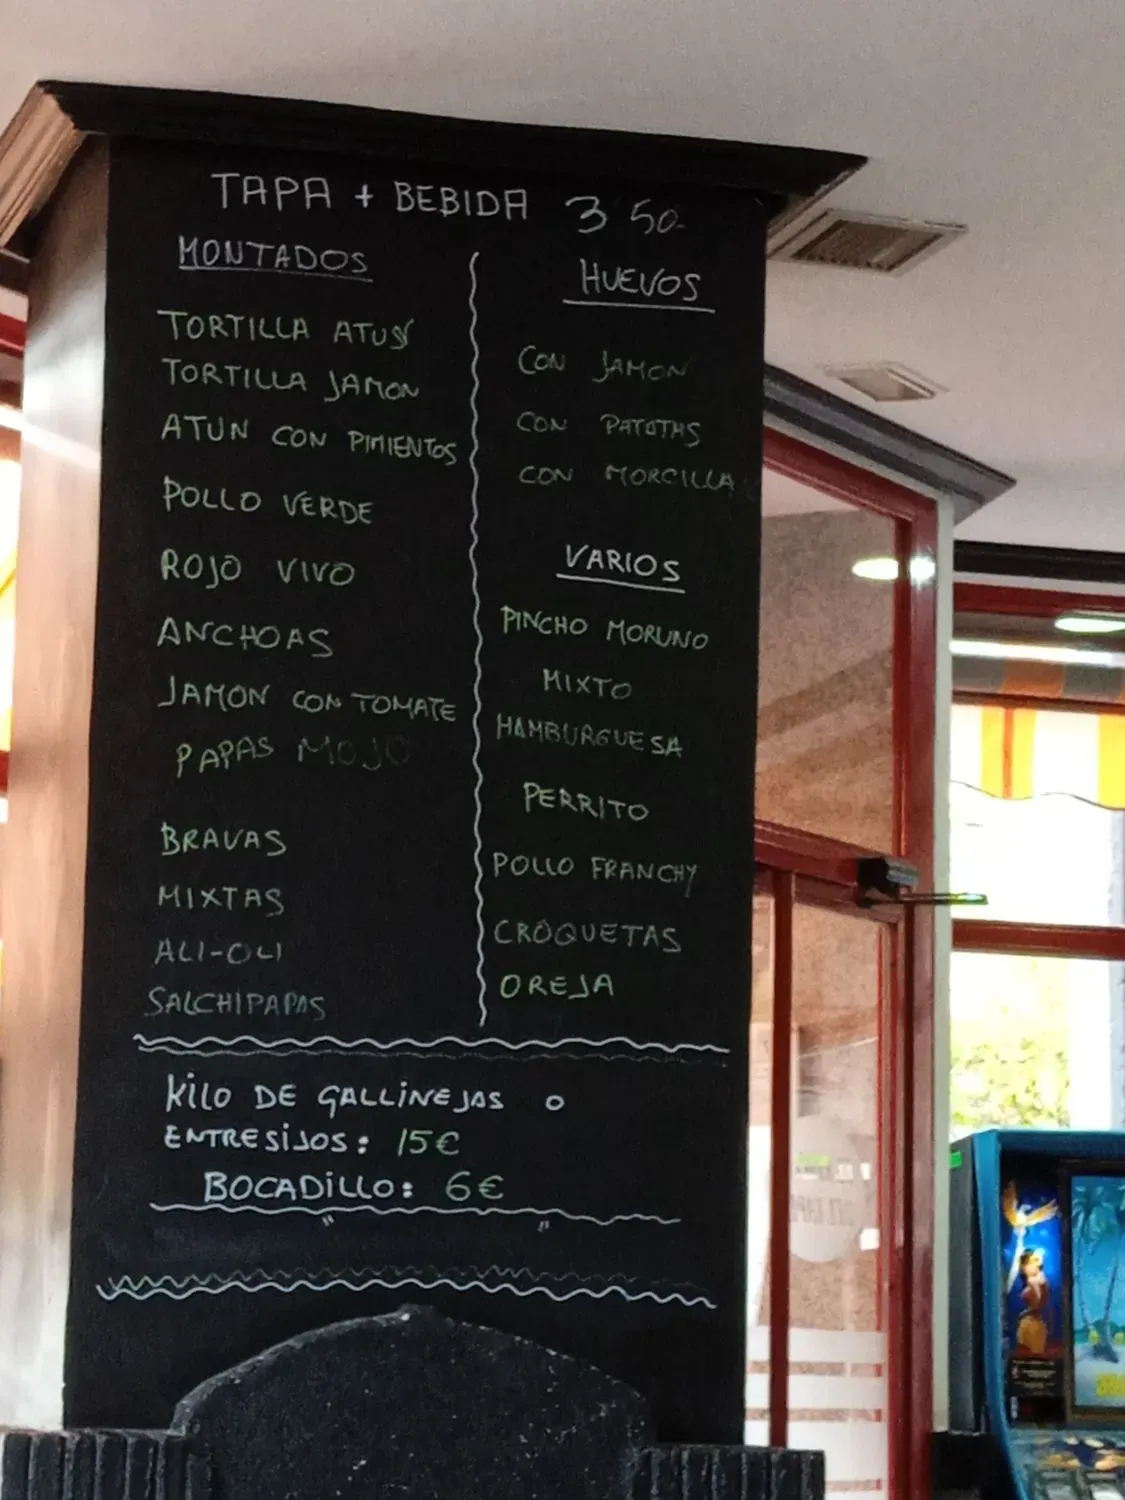 TAPA + BEBIDA 3'50-
MONTADOS
TORTILLA ATUN
TORTILLA JAMON
ATUN CON PIMIENTOS
POLLO VERDE
ROJO VIVO
ANCHOAS
JAMON CON TOMATE
PAPAS MOJO
BRAVAS
MIXTAS
ALI-OLI
SALCHIPAPAS
HUEVOS
CON JAMON
CON PATATAS
CON MORCILLA
VARIOS
PINCHO MORUNO
MIXTO
HAMBURGUESA
PERRITO
POLLO FRANCHY
CROQUETAS
OREJA
KILO DE GALLINEJAS O
ENTRESIJOS: 15€
BOCADILLO: 6€
" "